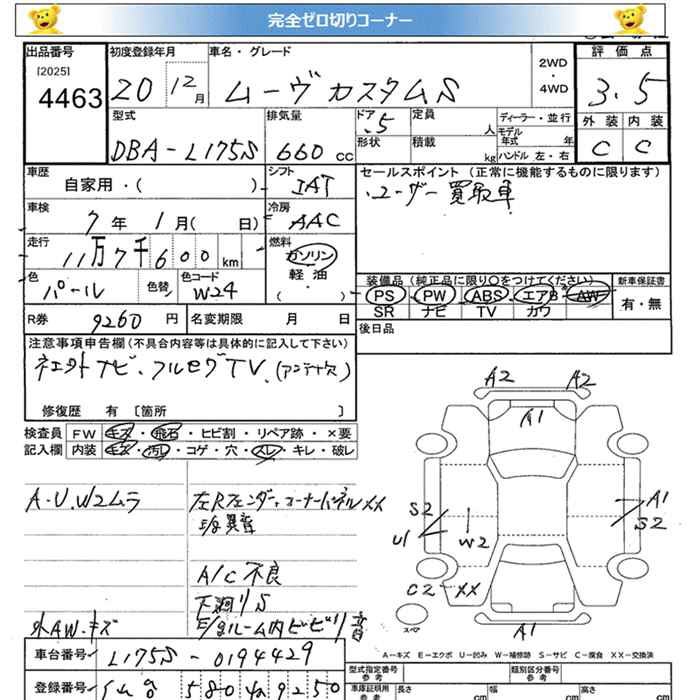 完全ゼロ切りコーナー
出品番号 初度登録年月 車名・グレード 評価点
[2025] 4463 20 12月 ムーヴカスタムS 2WD・4WD 3.5
型式 排気量 ドア 定員 ディーラー・並行 外装 内装
DBA-L175S 660cc 5 人 モデル年式 年 C C
形状 積載 kg ハンドル 左・右
車歴 シフト セールスポイント (正常に機能するものに限ります)
自家用・( ) IAT ・ユーザー買取車
車検 7年 1月( 日) 冷房 AAC
走行 11万7千600km 燃料 ガソリン
軽油
・
( )
色 パール 色替 色コード W24
装備品 (純正品に限り○をつけてください) 新車保証書
PS PW ABS エアB AW 有・無
SR ナビ TV カワ
R券 9260円 名変期限 月 日 後日品
注意事項申告欄(不具合内容等は具体的に記入して下さい)
社外ナビ、フルセグTV、(アンテナ欠)
修復歴 有 〔箇所 〕
検査員 FW キズ・飛石・ヒビ割・リペア跡・×要
記入欄 内装 キズ・汚レ・コゲ・穴・スレ・キレ・破レ
A2 A2
A1
A・U、W2ムラ 左Rフェンダー、コーナーパネルXX
S2 A1
S2
U1 W2
A/C不良
C2 XX
下廻りS
外AW.キズ
スペア
A1
A-キズ E-エクボ U-凹み W-補修跡 S-サビ C-腐食 XX-交換済
車台番号 L175S-0194429
型式指定番号 類別区分番号
登録番号 580 9250
車庫証明用参考 長さ cm 幅 cm 高さ cm